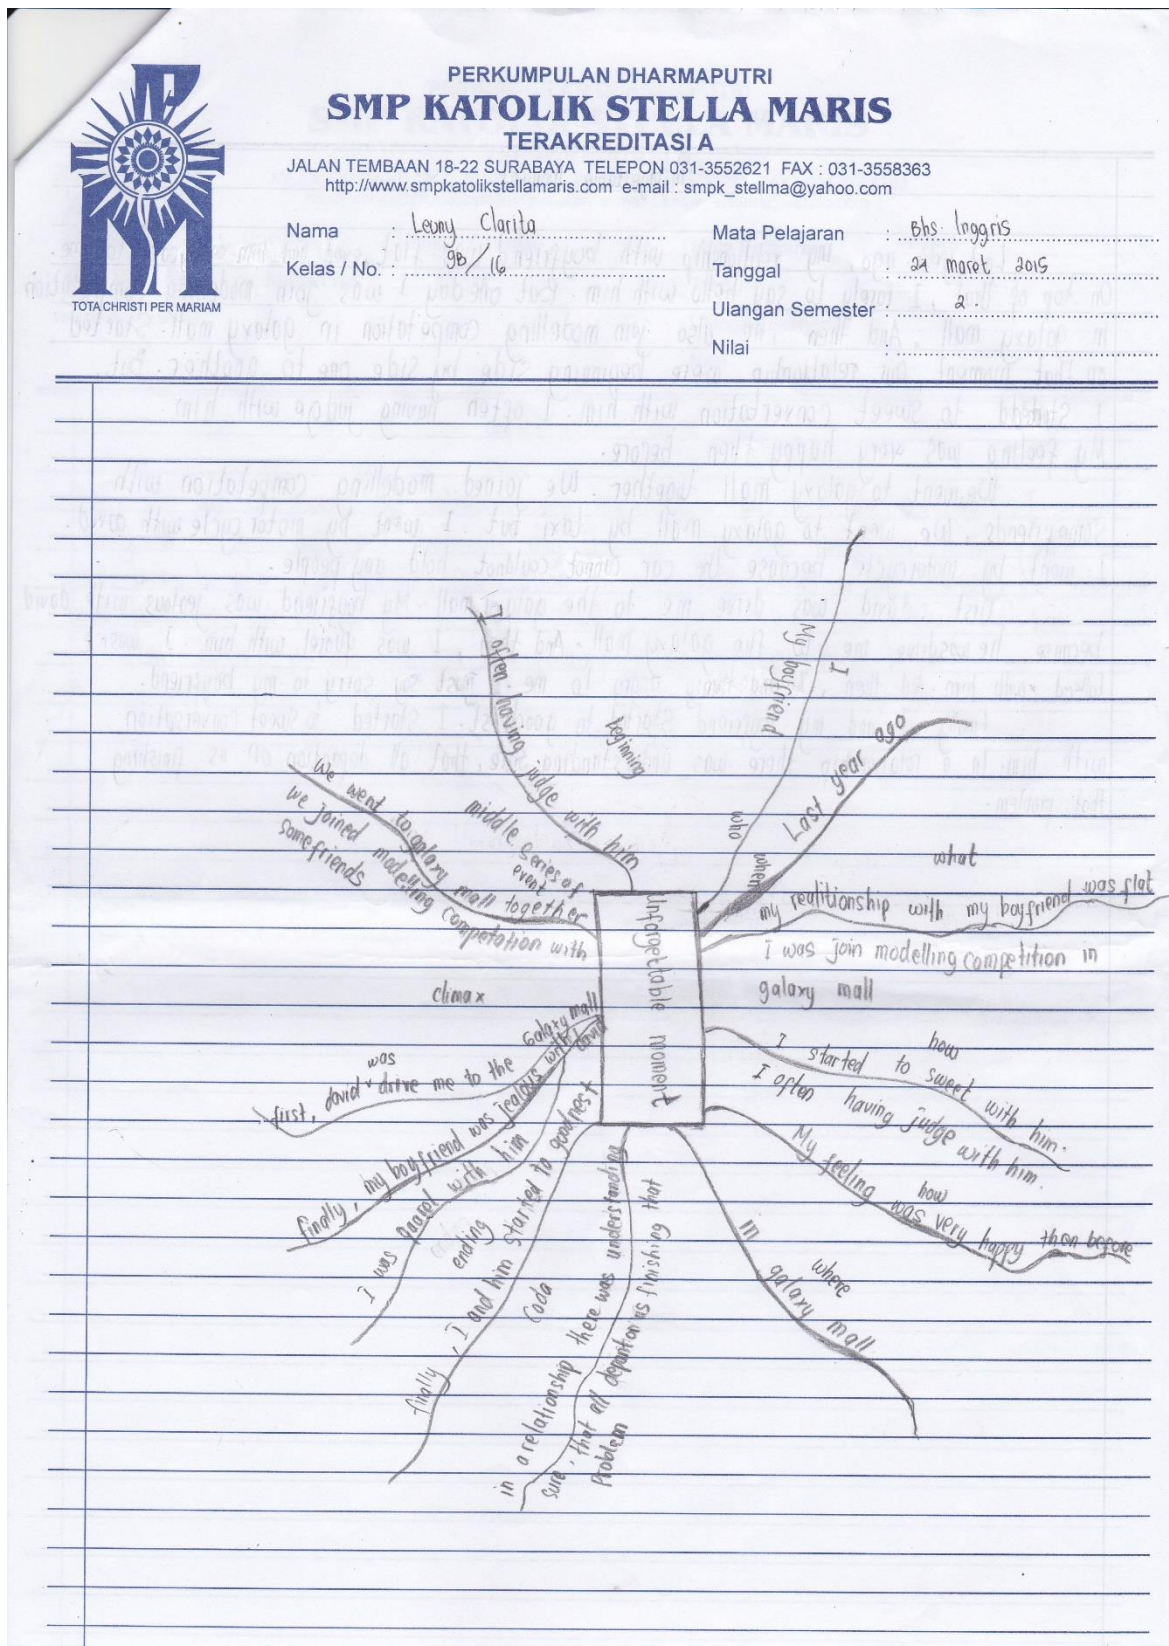 PERKUMPULAN DHARMAPUTRI
SMP KATOLIK STELLA MARIS
TERAKREDITASI A
JALAN TEMBAAN 18-22 SURABAYA TELEPON 031-3552621 FAX : 031-3558363
http://www.smpkatolikstellamaris.com e-mail : smpk_stellma@yahoo.com
TOTA CHRISTI PER MARIAM
Nama : Leony Clarita
Kelas / No. : 9B/16
Mata Pelajaran : Bhs. Inggris
Tanggal : 24 maret 2015
Ulangan Semester : 2.
Nilai :
Unforgettable moment
who
I
My boyfriend
when
Last year ago
what
my realitionship with my boyfriend was flat
I was join modelling competition in
galaxy mall
how
I started to sweet with him.
I often having judge with him.
how
My feeling was very happy then before
where
in galaxy mall
beginning
I often having judge with him
middle series of
event
we went to galaxy mall together
we joined modelling competation with
somefriends
climax
first, david was drive me to the Galaxy mall
finally, my boyfriend was jealous with david
I was quarel with him
ending
finally, I and him started to goodnest
Coda
in a relationship there was understanding
sure, that all as finishing that
Problem